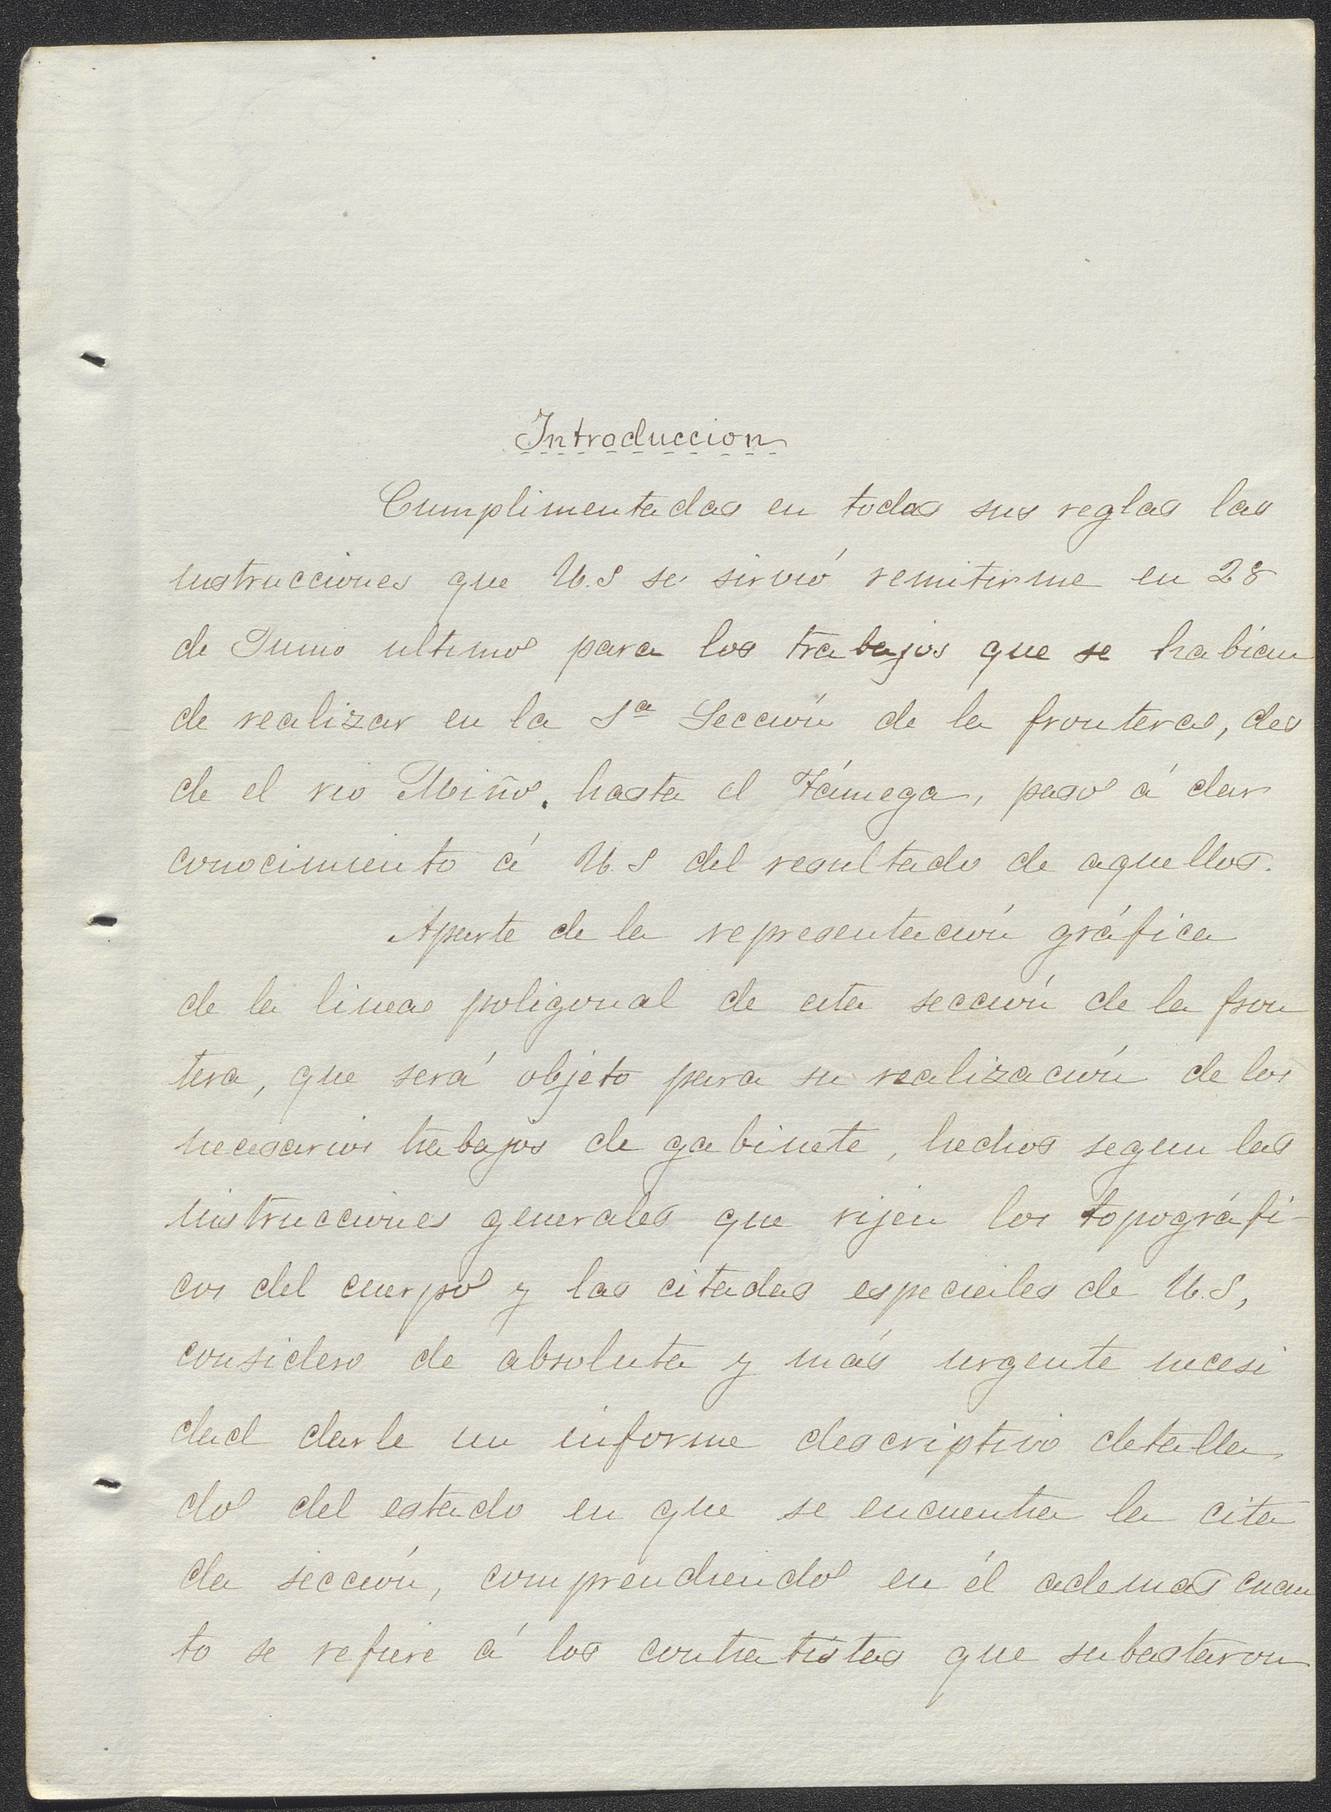 Introduccion
Cumplimentadas en todas sus reglas las
instrucciones que U.S se sirvió remitirme en 28
de Junio ultimo para los trabajos que se habian
de realizar en la 1ª Sección de la frontera, des
de el rio Miño, hasta el Támega, paso á dar
conocimiento á U.S del resultado de aquellos.
Aparte de la representación gráfica
de la linea poligonal de esta sección de la fron
tera, que será objeto para su realización de los
necesarios trabajos de gabinete, hechos segun las
instrucciones generales que rijen los topográfi-
cos del cuerpo y las citadas especiales de U.S,
considero de absoluta y más urgente necesi
dad darle un informe descriptivo detalla
do del estado en que se encuentra la cita
da sección, comprendiendo en él ademas cuan
to se refiere á los contratistas que subastaron